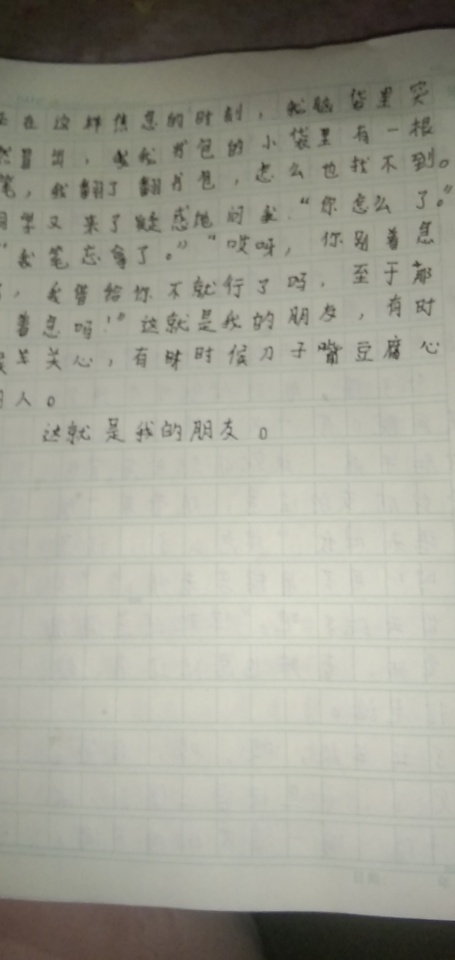 在这样焦急的时刻，我脑袋里突
然冒出，我书包的小袋里有一根
笔，我翻了翻书包，怎么也找不到。
同学又来了疑惑地问我“你怎么了。”
“我笔忘拿了。”“哎呀，你别着急
，我借给你不就行了吗，至于那
着急吗！”这就是我的朋友，有时
关心，有时候刀子嘴豆腐心
的人。
这就是我的朋友。